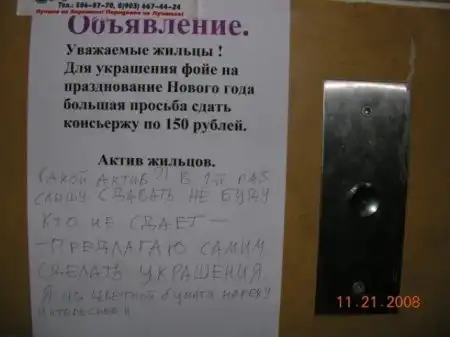 Тел.: 506-57-70, 8(903) 667-44-24
Объявление.
Уважаемые жильцы !
Для украшения фойе на
празднование Нового года
большая просьба сдать
консьержу по 150 рублей.
Актив жильцов.
КАКОЙ АКТИВ?! В 1-й РАЗ
СЛЫШУ. СДАВАТЬ НЕ БУДУ
КТО НЕ СДАЕТ —
— ПРЕДЛАГАЮ САМИМ
СДЕЛАТЬ УКРАШЕНИЯ.
Я из цветной бумаги нарежу
11.21.2008